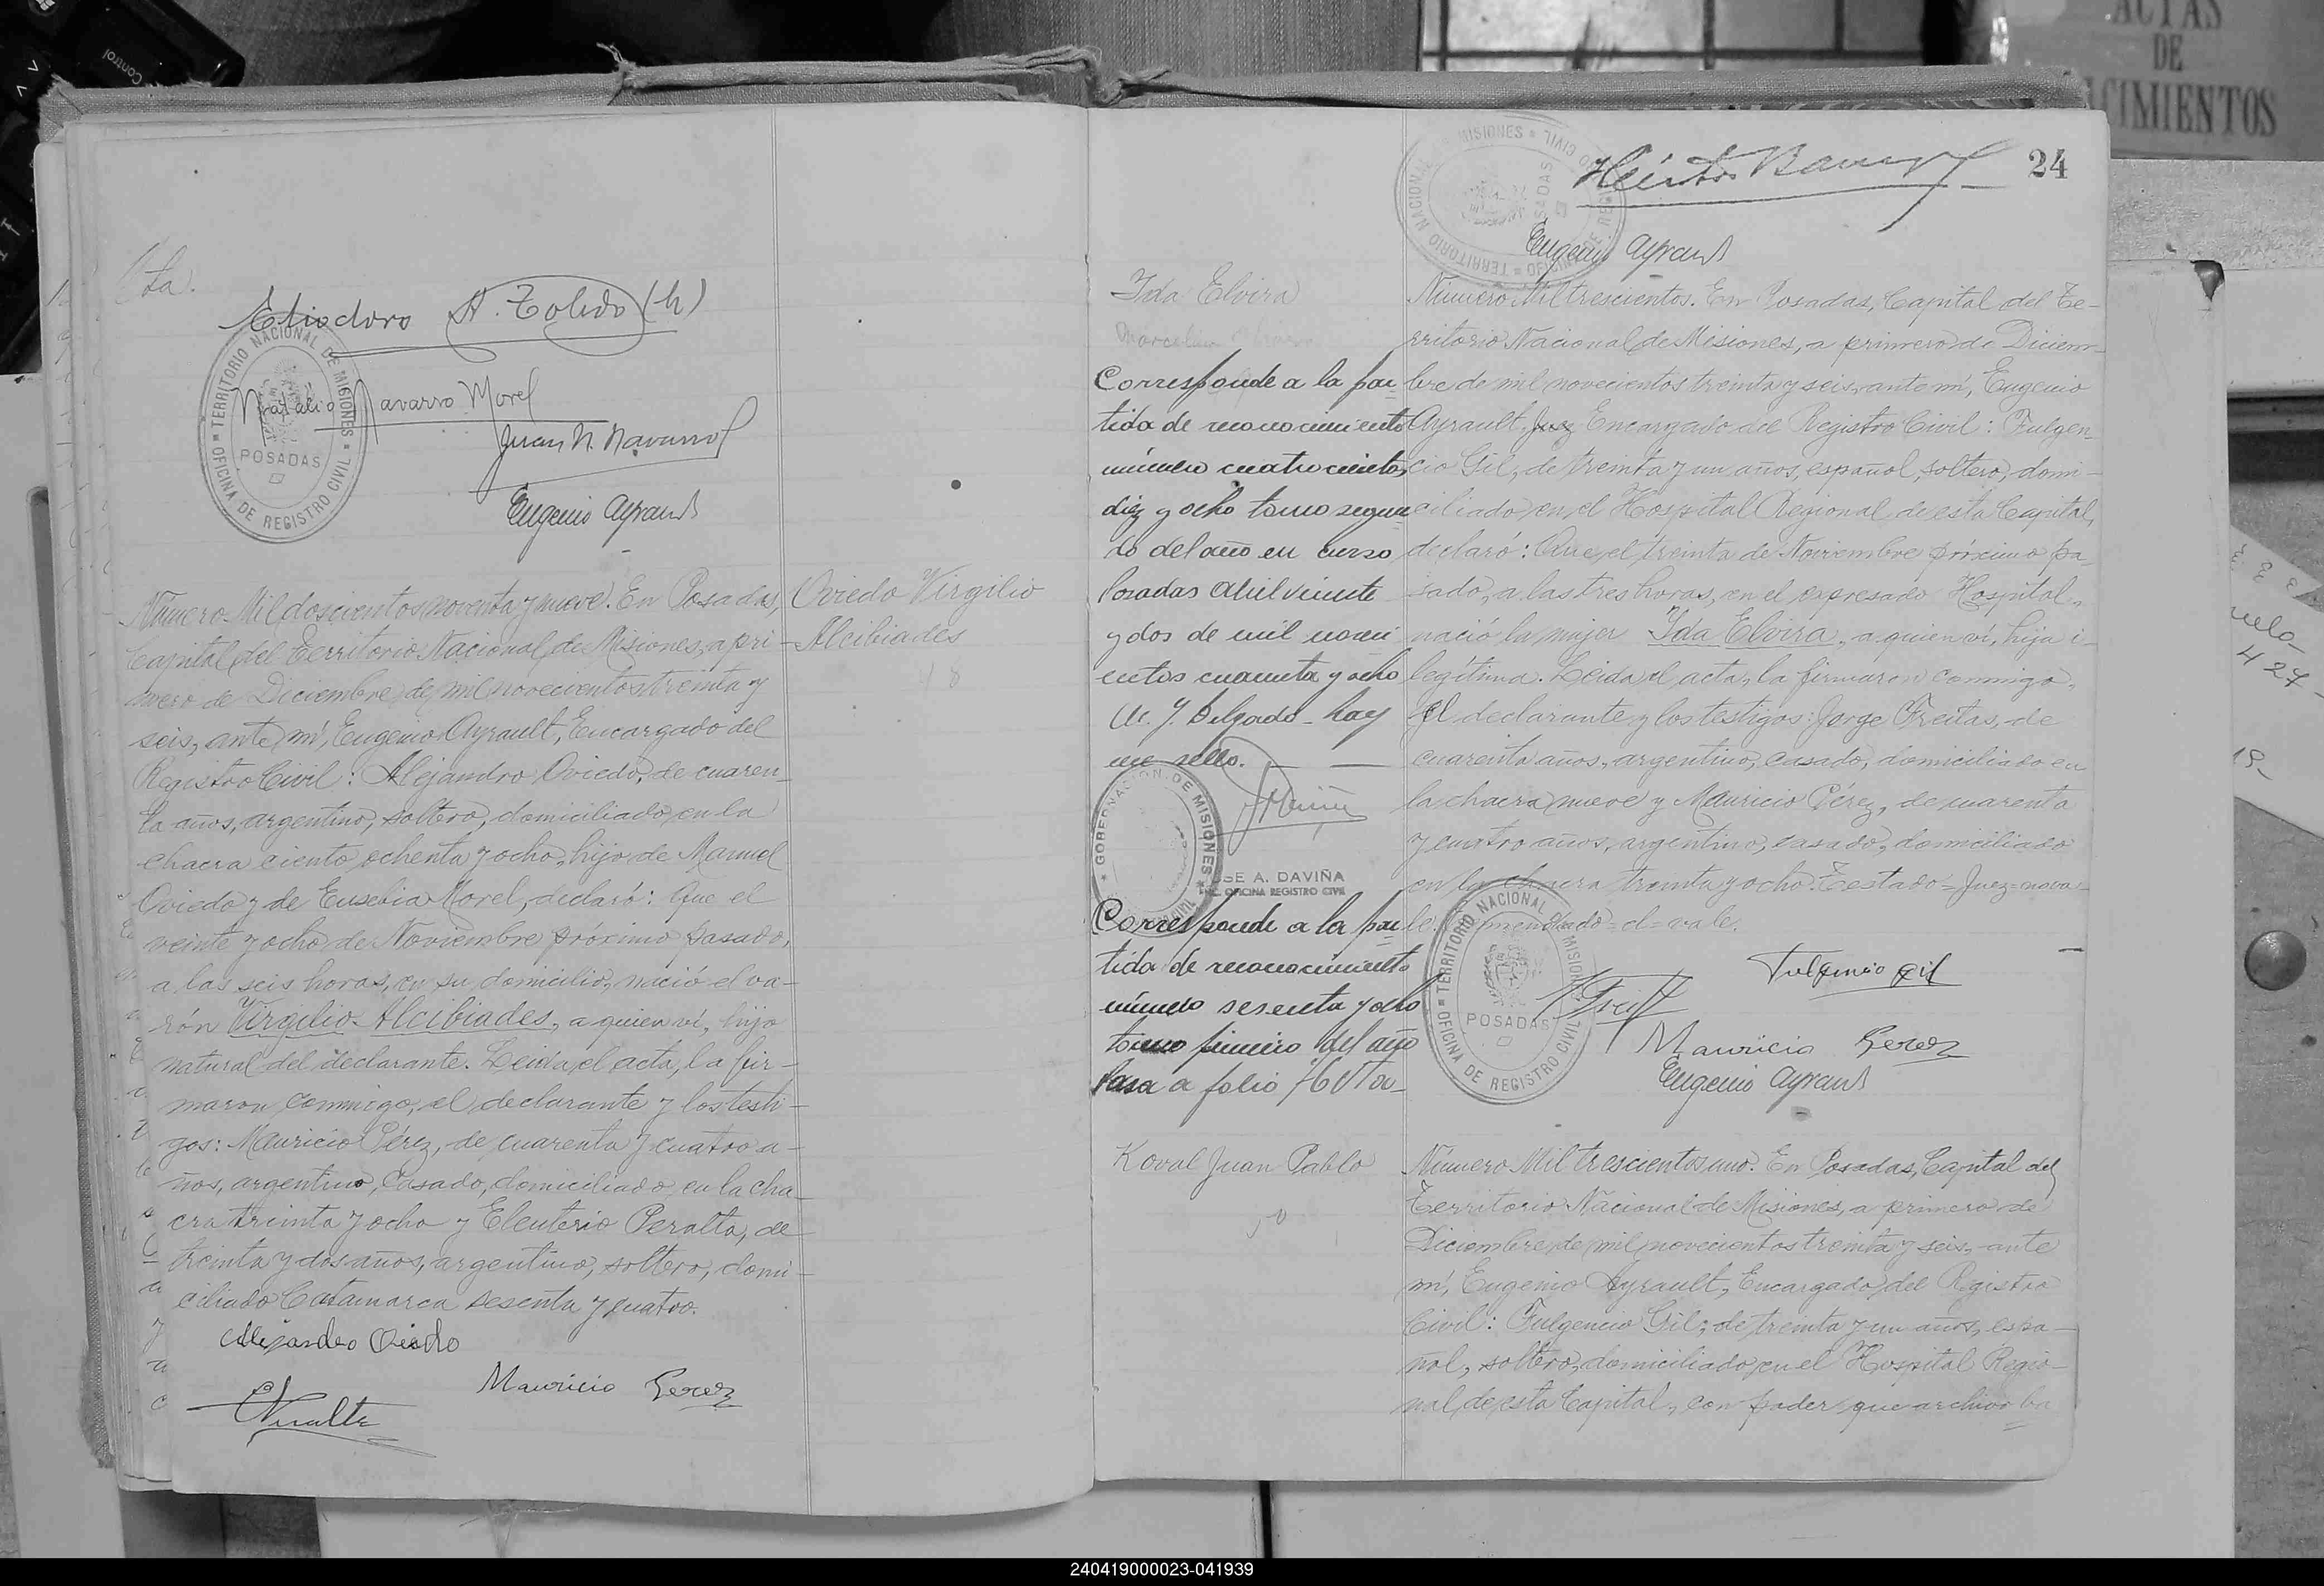 Control
ACTAS
DE
CIMIENTOS
ta.
Eliodoro A. Toledo (h)
Natalio Navarro Morel
Juan N. Navarro
Eugenio Ayrault
OFICINA DE REGISTRO CIVIL = TERRITORIO NACIONAL DE MISIONES =
POSADAS
Número Mil doscientos noventa y nueve. En Posadas,
Capital del Territorio Nacional de Misiones, a pri-
mero de Diciembre de mil novecientos treinta y
seis, ante mí, Eugenio Ayrault, Encargado del
Registro Civil: Alejandro Oviedo, de cuaren-
ta años, argentino, soltero, domiciliado en la
chacra ciento ochenta y ocho, hijo de Manuel
Oviedo y de Eusebia Morel, declaró: Que el
veinte y ocho de Noviembre próximo pasado,
a las seis horas, en su domicilio, nació el va-
rón Virgilio Alcibiades, a quien ví, hijo
natural del declarante. Leida el acta, la fir-
maron conmigo, el declarante y los testi-
gos: Mauricio Pérez, de cuarenta y cuatro a-
ños, argentino, casado, domiciliado en la cha-
cra treinta y ocho y Eleuterio Peralta, de
treinta y dos años, argentino, soltero, domi-
ciliado Catamarca sesenta y cuatro.
Alejandro Oviedo
Mauricio Perez
EPeralta
Oviedo Virgilio
Alcibiades
48
24
Eugenio Ayrault
Ida Elvira
Corresponde a la par
tida de reconocimiento
número cuatrocientos
diez y ocho tomo segun
do del año en curso
Posadas Abril veinte
y dos de mil noveci
entos cuarenta y ocho
M. J. Delgado - hay
un sello.
GOBERNACION DE MISIONES
JOSE A. DAVIÑA
OFICINA REGISTRO CIVIL
Corresponde a la par
tida de reconocimiento
número sesenta y ocho
tomo primero del año
Pasa a folio 76 Vto-
Número Mil trescientos. En Posadas, Capital del Te-
rritorio Nacional de Misiones, a primero de Diciem-
bre de mil novecientos treinta y seis, ante mí, Eugenio
Ayrault, Juez Encargado del Registro Civil: Fulgen-
cio Gil, de treinta y un años, español, soltero, domi-
ciliado en el Hospital Regional de esta Capital,
declaró: Que el treinta de Noviembre próximo pa-
sado, a las tres horas, en el expresado Hospital,
nació la mujer Ida Elvira, a quien ví, hija i-
legítima. Leida el acta, la firmaron conmigo,
el declarante y los testigos: Jorge Freitas, de
cuarenta años, argentino, casado, domiciliado en
la chacra nueve y Mauricio Pérez, de cuarenta
y cuatro años, argentino, casado, domiciliado
en la chacra treinta y ocho. Testado=Juez=no va-
le. Enmendado=el=vale.
Fulgencio Gil
JFreitas
Mauricio Perez
Eugenio Ayrault
OFICINA DE REGISTRO CIVIL = TERRITORIO NACIONAL DE MISIONES =
POSADAS
Koval Juan Pablo
50
Número Mil trescientos uno. En Posadas, Capital del
Territorio Nacional de Misiones, a primero de
Diciembre de mil novecientos treinta y seis, ante
mí, Eugenio Ayrault, Encargado del Registro
Civil: Fulgencio Gil, de treinta y un años, espa-
ñol, soltero, domiciliado en el Hospital Regio-
nal de esta Capital, con poder que archivo ba
427
19-
240419000023-041939